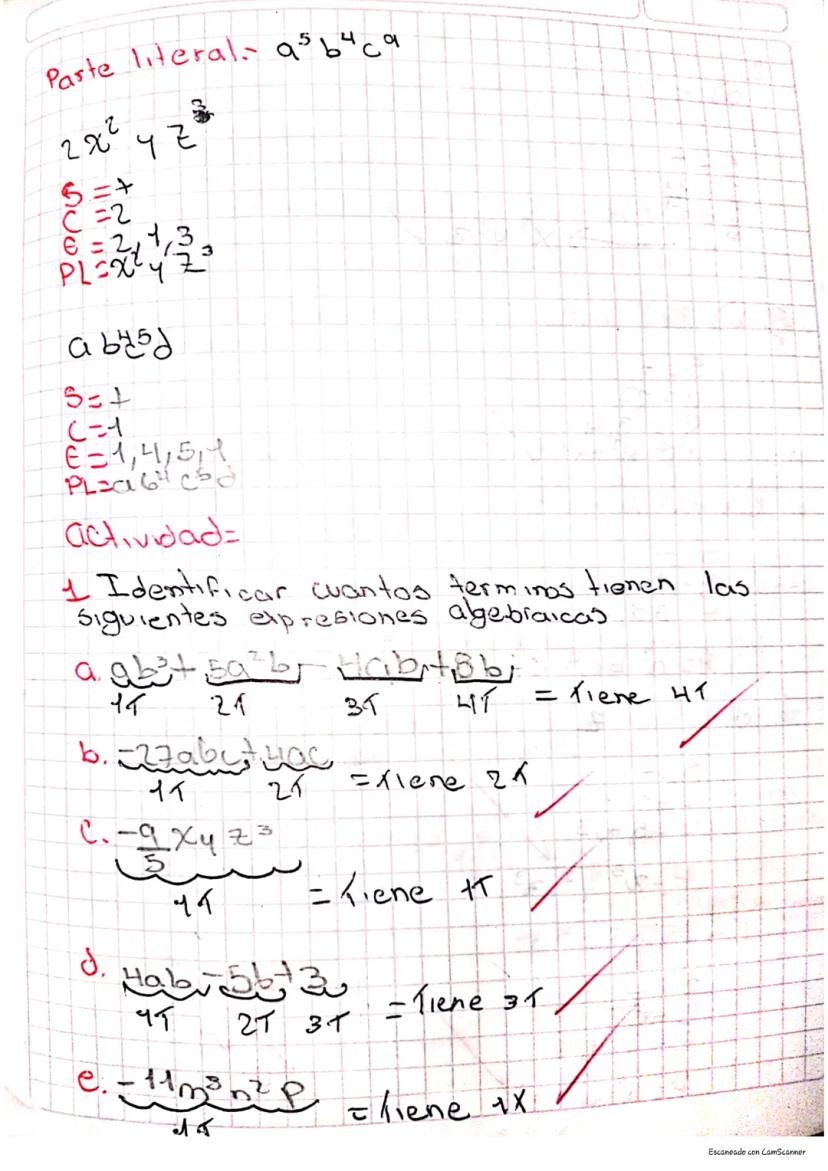 Parte literal.- a⁵b⁴c⁹
2x²yz³
S = +
C = 2
E = 2, 1, 3
PL = x²yz³
ab⁴c⁵d
S = +
C = 1
E = 1, 4, 5, 1
PL = ab⁴c⁵d
actividad =
1 Identificar cuantos terminos tienen las
siguientes expresiones algebraicas
a. ab³ + 5a²b - 4ab + 8b
1T 2T 3T 4T = tiene 4T
b. -27abc + 4ac
1T 2T = tiene 2T
c. -9/5 xyz³
1T = tiene 1T
d. 4ab - 5b + 3
1T 2T 3T = tiene 3T
e. -11m³n²p
1T = tiene 1X
Escaneado con CamScanner